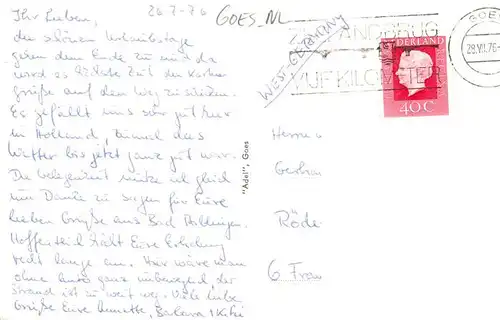 Ihr Lieben, 26-7-76
die schönen Urlaubstage
gehen dem Ende zu und da
wird es höchste Zeit den Karten
grüße auf den Weg zu schicken.
Es gefällt uns sehr gut hier
in Holland, zumal das
Wetter bis jetzt ganz gut war.
Die Gelegenheit nütze ich gleich
um Danke zu sagen für Eure
lieben Grüße aus Bad
Hoffentlich hält Eure Erholung
recht lange an. Hier wäre man
ohne Auto ganz unbeweglich, der
Strand ist zu weit weg. Viele liebe
Grüße Eure Annette, Barbara + Kiki
"Adel", Goes
GOES-NL
WEST-GERMANY
ZEELANDBRUG
VIJF KILOMETER
NEDERLAND
40 C
GOES
28.VII.76
Röde
6 Fran